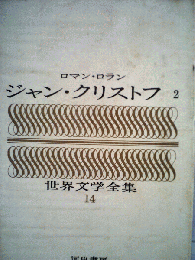 ロマン・ロラン
ジャン・クリストフ 2
世界文学全集
14
河出書房